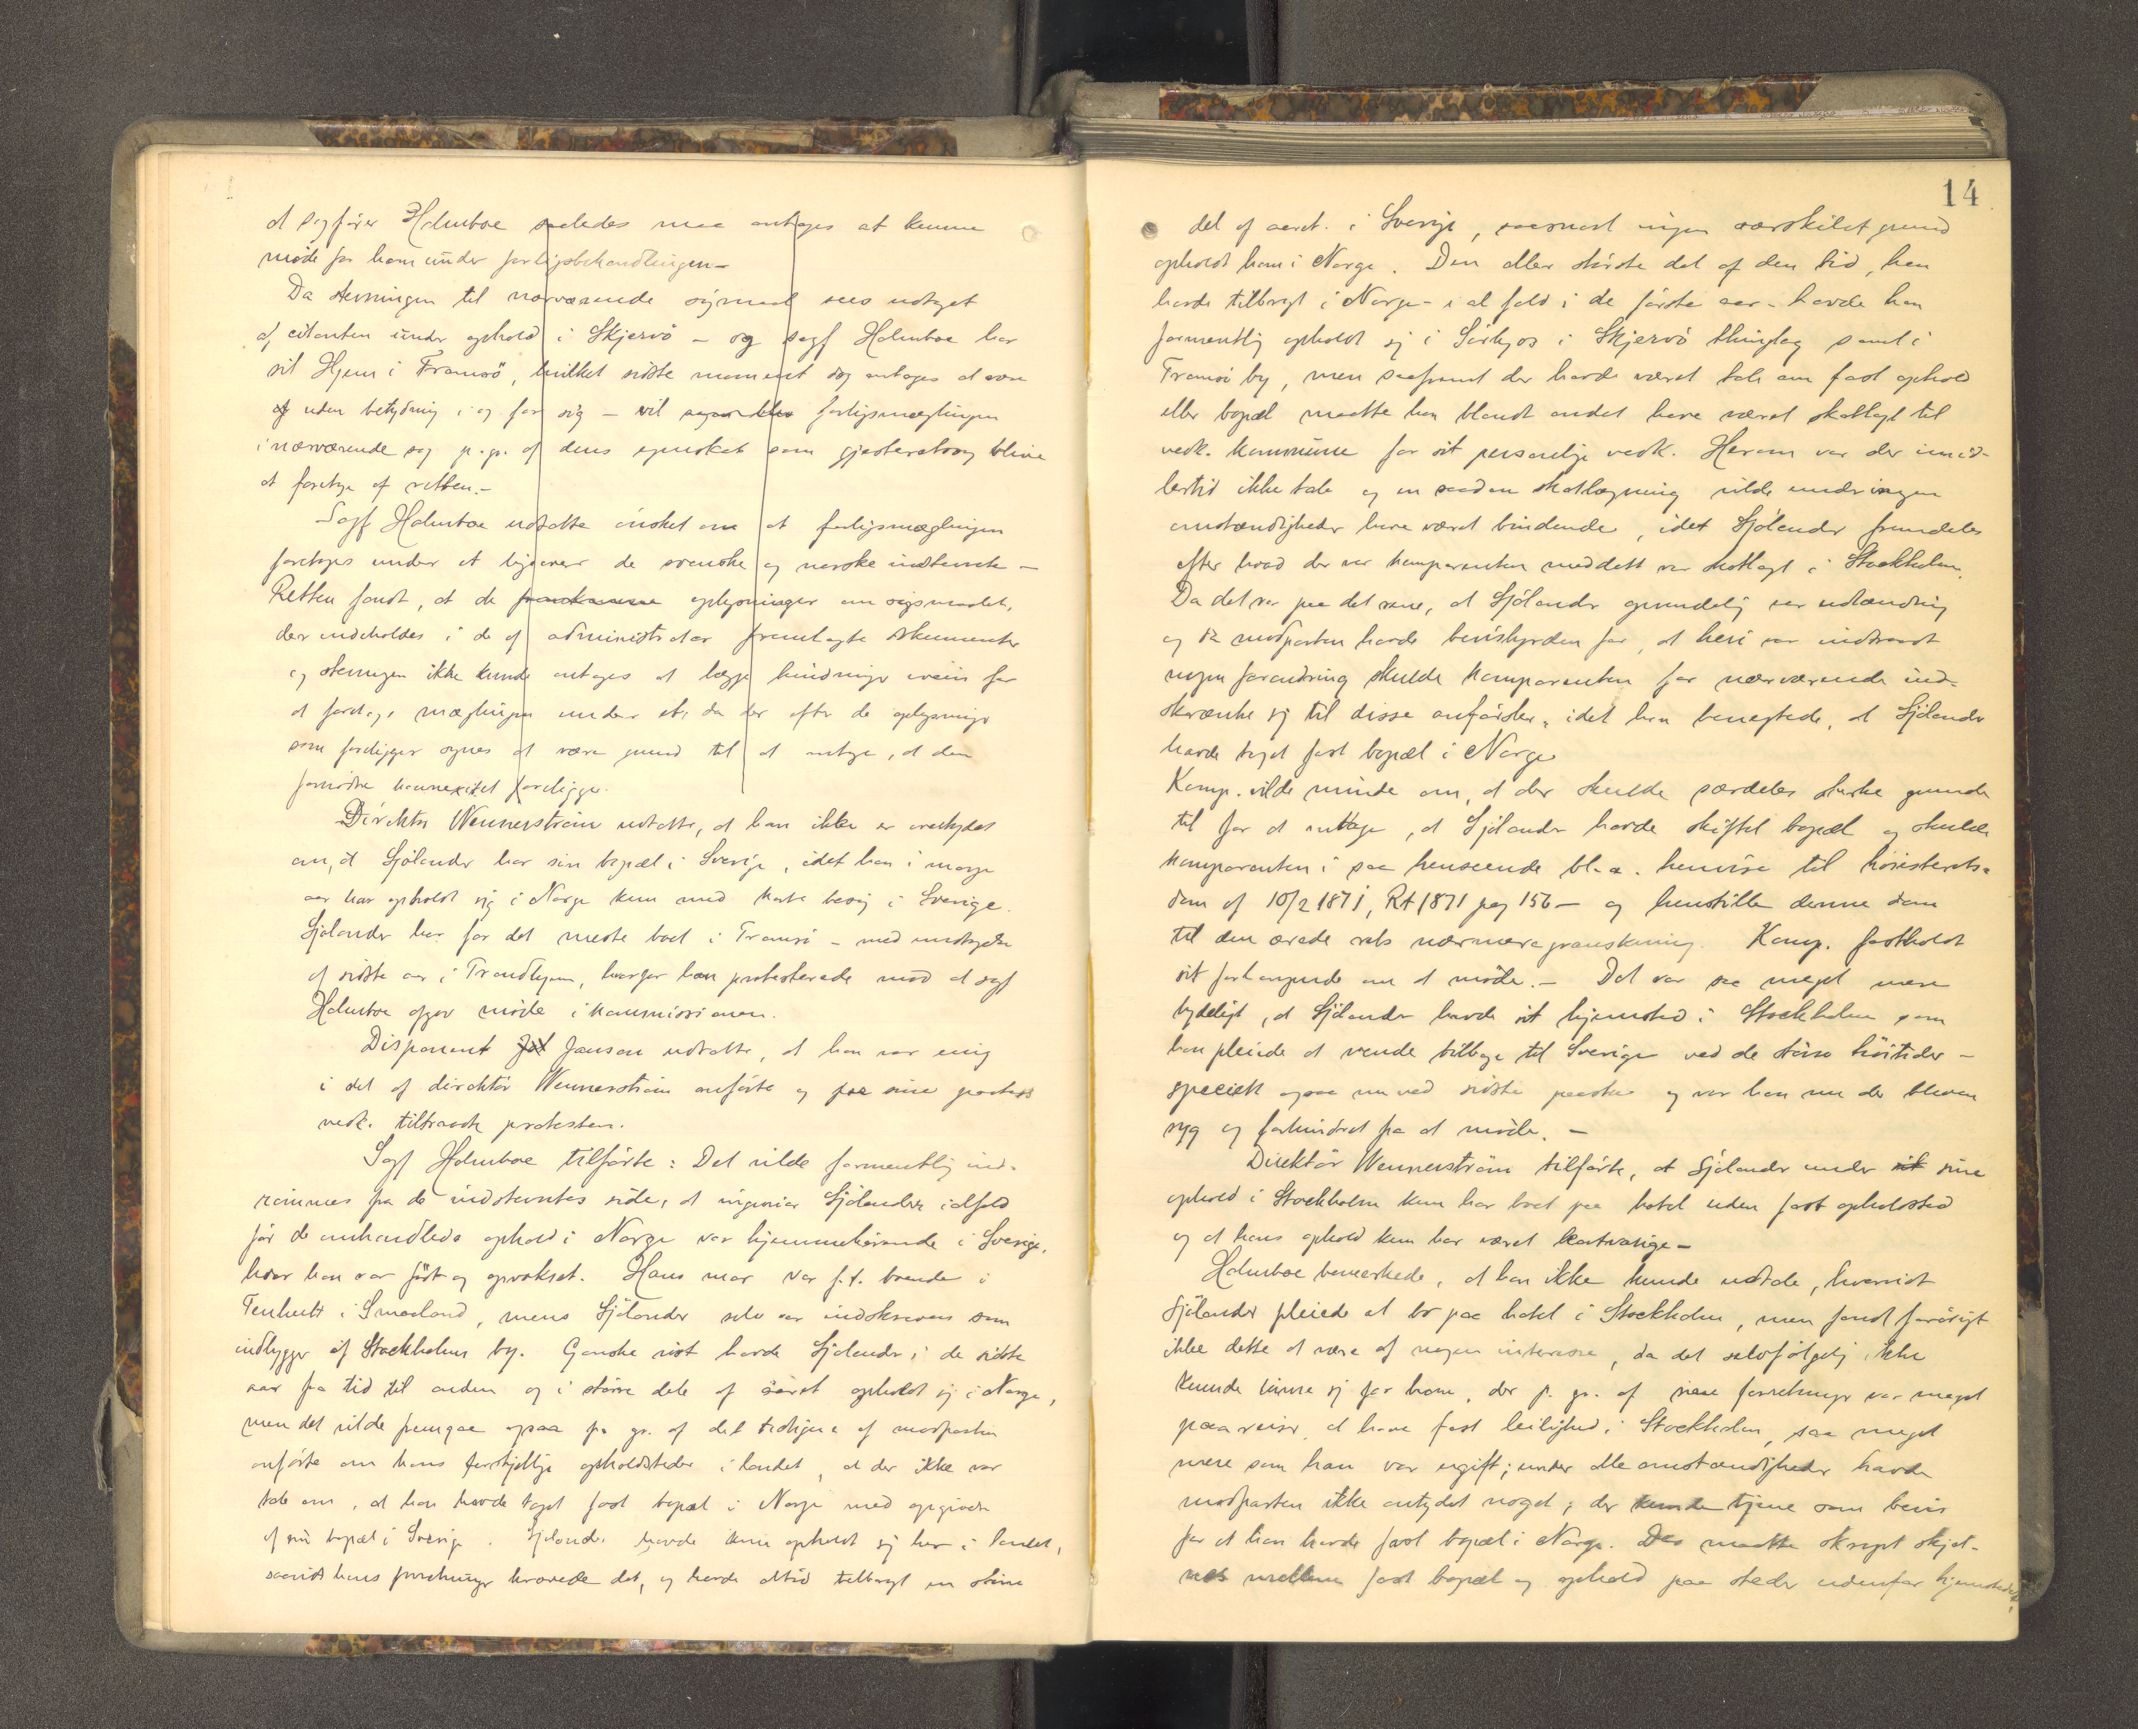 at sagfører Holmboe saaledes maa antages at kunne
møde for ham under forligsbehandlingen –
Da stevningen til nærværende søgsmaal sees udtaget
af citanten under ophold i Skjervö – og sagf Holmboe har
sit Hjem i Tromsö, hvilket sidste moment dog antages at være
uden betydning i og for sig – vil forligsmæglingen
i nærværende sag p. gr. af dens egenskab som gjesteretssag blive
at foretage af retten. –
Sagf Holmboe udtalte önsket om at forligsmæglingen
foretages under et ligeover de svenske og norske indstevnte –
Retten fandt, at de oplysninger om søgsmaalet,
der indeholdes i de af administrator fremlagte dokumenter
og stevningen ikke kunde antages at lægge hindringer iveien for
at foretage mæglingen under et, da der efter de oplysninger
som foreligger synes at være grund til at antage, at den
fornødne konnexitet foreligger.
Direktör Wennerström udtalte, at han ikke er overbydet
om, at Sjölander har sin bopæl i Sverige, idet han i mange
aar har opholdt sig i Norge kun med korte besøg i Sverige.
Sjölander har for det meste boet i Tromsö – med undtagelse
af sidste aar i Trondhjem, hvorfor han protesterede mod at sagf
Holmboe afgav möde i kommissionen.
Disponent Janson udtalte, at han var enig
i det af direktör Wennerström anförte og paa sine parters
vedk. tiltraadte protesten.
Sagf Holmboe tilförte: Det vilde formentlig ind-
römmes fra de indstevntes side, at ingeniør Sjölander ialfald
för de omhandlede ophold i Norge var hjemmehörende i Sverige,
hvor han var född og opvokset. Hans mor var f.t. boende i
Tenhult i Smaaland, mens Sjölander selv var indskreven som
indbygger af Stockholms by. Ganske vist havde Sjölander i de sidste
aar fra tid til anden og i större dele af aaret opholdt sig i Norge,
men det vilde fremgaa ogsaa paa gr. af det tidligere af modparten
anförte om hans forskjellige opholdssteder i landet, at der ikke var
tale om, at han havde taget fast bopæl i Norge med opgivelse
af sin bopæl i Sverige. Sjölander havde kun opholdt sig her i landet,
saavidt hans forretninger krævede det, og havde altid tilbragt en större
14
del af aaret i Sverige, saasnart ingen særskilet grund
opholdt ham i Norge. Den aller störste del af den tid, han
havde tilbragt i Norge – i al fald i de förste aar – havde han
formentlig opholdt sig i Sörkjos i Skjervö thinglag samt i
Tromsö by, men saafremt der havde været tale om fast ophold
eller bopæl maatte han blandt andet have været skatlagt til
vedk. kommune for sit personlige vedk. Herom var der imid-
lertid ikke tale og en saadan skatlægning vilde under ingen
omstændigheder have været bindende, idet Sjölander fremdeles
efter hvad der var komparenten meddelt var skatlagt i Stockholm.
Da det var paa det rene, at Sjölander oprindelig var udlænding
og da modparten havde bevisbyrden for, at heri var indtraadt
nogen forandring skulde komparenten for nærværende ind-
skrænke sig til disse anförsler, idet han benegtede, at Sjölander
havde taget fast bopæl i Norge
Komp. vilde minde om, at der skulde særdeles sterke grunde
til for at antage, at Sjölander havde skiftet bopæl og skulde
komparenten i saa henseende bl.a. henvise til höiesterets-
dom af 10/2 1871, Rt 1871 pag 156 – og henstille denne dom
til den ærede rets nærmere granskning. Komp. fastholdt
sit forlangende om at möde. – Det var saa meget mere
tydeligt, at Sjölander havde sit hjemsted i Stockholm som
han pleiede at vende tilbage til Sverige ved de större höitider –
specielt ogsaa nu ved sidste paaske og var han nu der bleven
syg og forhindret fra at möde. –
Direktör Wennerström tilförte, at Sjölander under sit sine
ophold i Stockholm kun har boet paa hotel uden fast opholdssted
og at hans ophold kun har været kortvarige –
Holmboe bemærkede, at han ikke kunde udtale, hvorvidt
Sjölander pleiede at bo paa hotel i Stockholm, men fandt forövrigt
ikke dette at være af nogen interesse, da det selvfölgelig ikke
kunde lönne sig for ham, der p. gr. af sine forretninger var meget
paa reiser, at have fast leilighed i Stockholm, saa meget
mere som han var ugift; under alle omstændigheder havde
modparten ikke antydet noget, der kunde tjene som bevis
for at han havde fast bopæl i Norge. Der maatte skarpt skjel-
nes mellem fast bopæl og ophold paa steder udenfor hjemstedet,